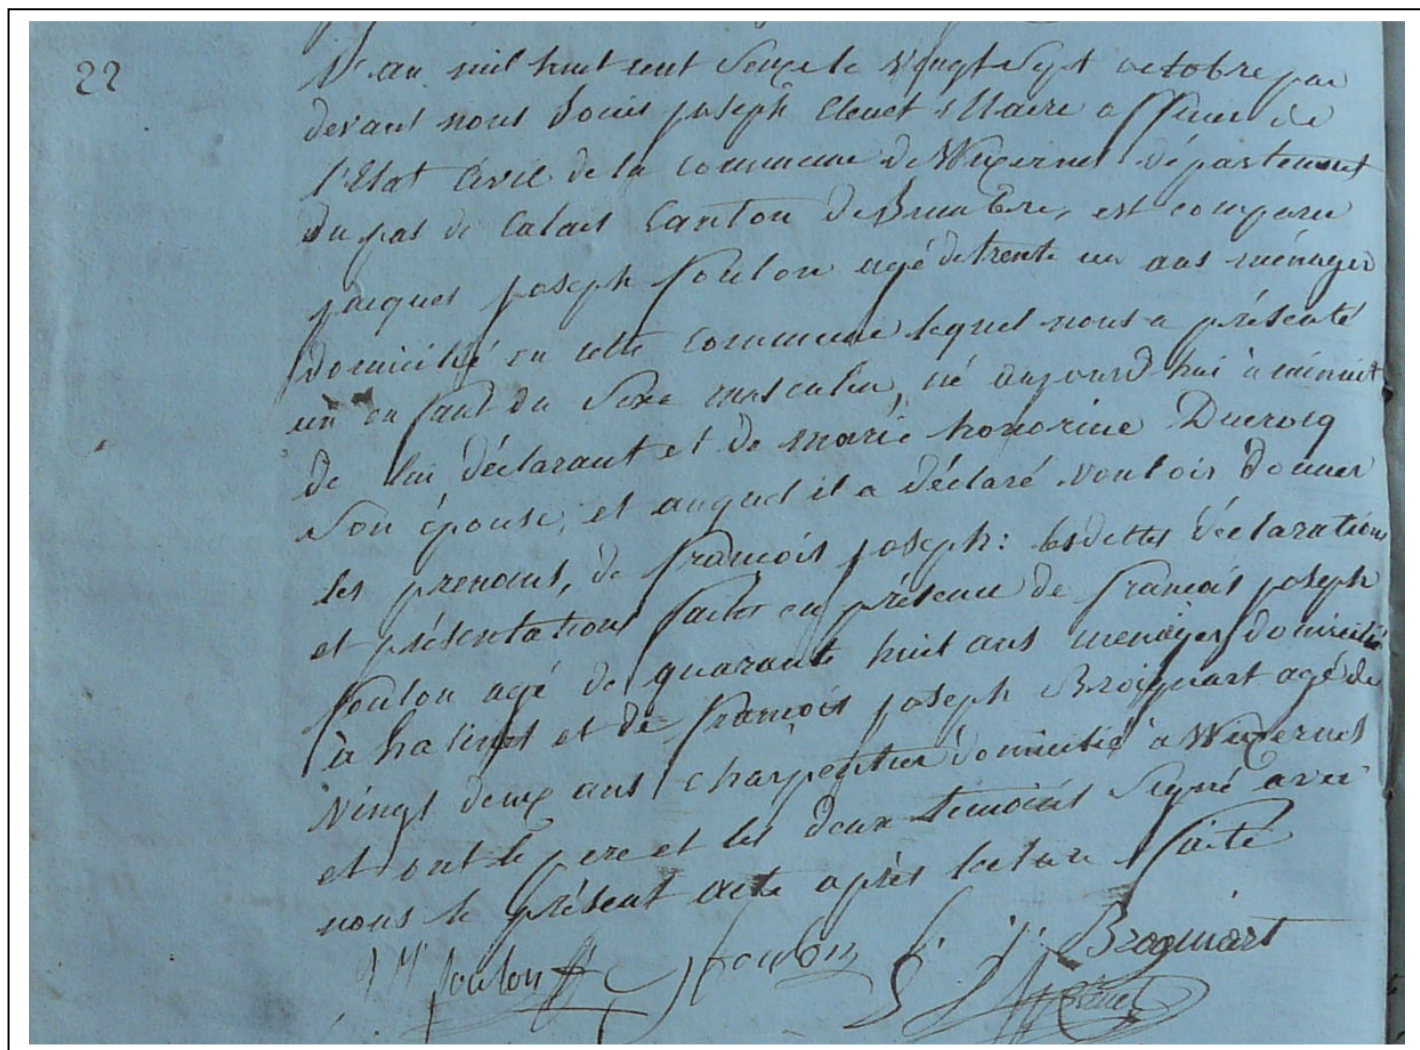 22
L'an mil huit cent seize le vingt sept octobre par
devant nous Louis joseph Clenet Maire officier de
l'Etat Civil de la commune de Wizernes département
du pas de Calais Canton de est comparu
jacques joseph foulon agé de trente un ans ménager
domicilié en cette commune lequel nous a présenté
un enfant du sexe masculin, né aujourd'hui à minuit
de lui déclarant et de marie honorine Ducrocq
son épouse, et auquel il a déclaré vouloir donner
les prenoms, de francois joseph: lesdittes déclaration
et présentation faites en présence de francois joseph
foulon agé de quarante huit ans menager domicilié
à halines et de françois joseph Broquart agé de
vingt deux ans charpentier domicilié à Wizernes
et ont le pere et les deux temoins signé avec
nous le présent acte après lecture faite
foulon foulon f. j. Broquiart